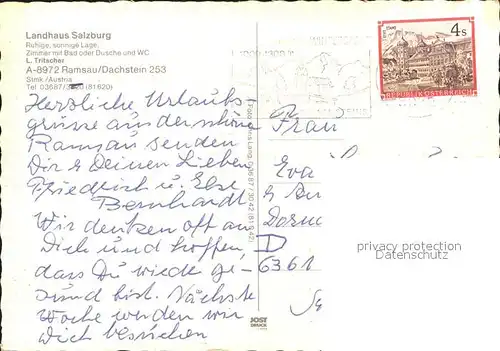 Landhaus Salzburg
Ruhige, sonnige Lage,
Zimmer mit Bad oder Dusche und WC
L. Tritscher
A-8972 Ramsau/Dachstein 253
Stmk./Austria
Tel 03687/ (81620)
Herzliche Urlaubs
grüsse aus der schönen
Ramsau senden
Dir & Deinen Lieben
Friedrich u. Else
Bernhardt
Wir denken oft an
Dich und hoffen,
dass Du wieder ge-
sund bist. Nächste
Woche werden wir
Dich besuchen
4 S
REPUBLIK ÖSTERREICH
Frau
Eva
D
6361
privacy protection
Datenschutz
JOST
DRUCK